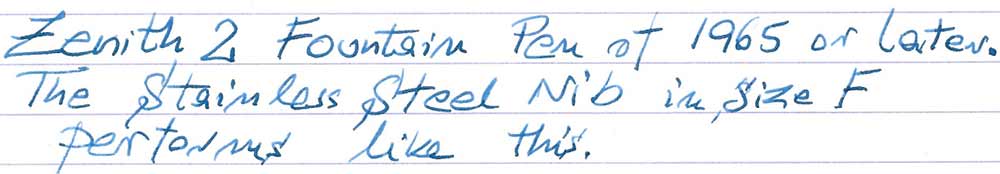 Zenith 2 Fountain Pen of 1965 or later.
The Stainless Steel Nib in size F
performs like this.